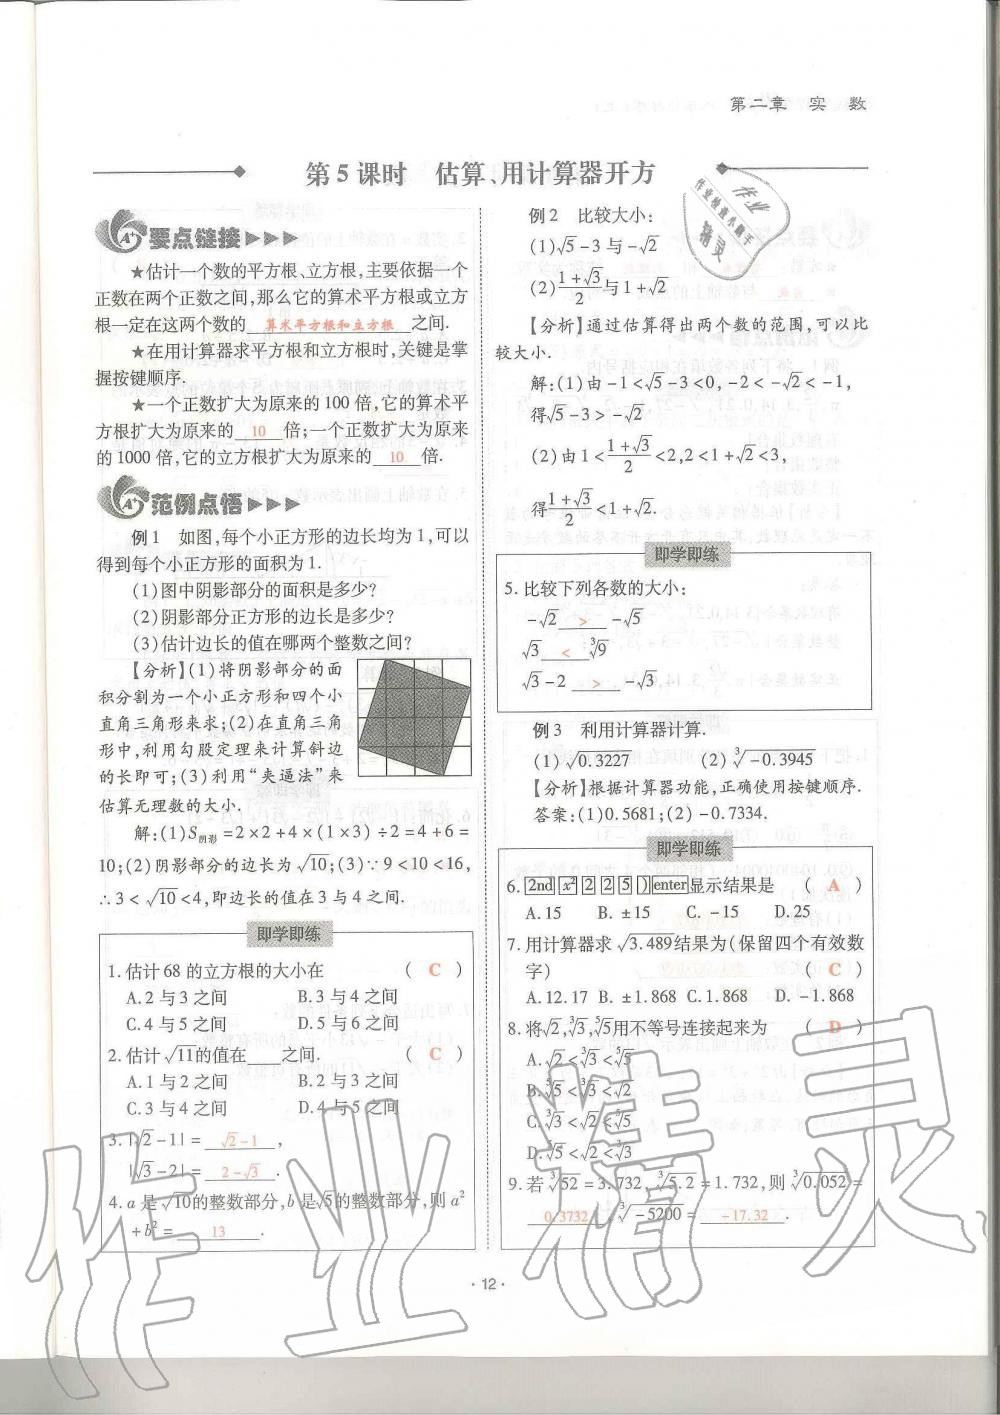 第二章　实　数
第5课时　估算、用计算器开方
要点链接
★估计一个数的平方根、立方根,主要依据一个
正数在两个正数之间,那么它的算术平方根或立方
根一定在这两个数的 算术平方根和立方根 之间.
★在用计算器求平方根和立方根时,关键是掌
握按键顺序.
★一个正数扩大为原来的100倍,它的算术平
方根扩大为原来的 10 倍;一个正数扩大为原来
的1000倍,它的立方根扩大为原来的 10 倍.
范例点悟
例1　如图,每个小正方形的边长均为1,可以
得到每个小正方形的面积为1.
(1)图中阴影部分的面积是多少?
(2)阴影部分正方形的边长是多少?
(3)估计边长的值在哪两个整数之间?
【分析】(1)将阴影部分的面
积分割为一个小正方形和四个小
直角三角形来求;(2)在直角三角
形中,利用勾股定理来计算斜边
的长即可;(3)利用“夹逼法”来
估算无理数的大小.
解:(1)S阴影=2×2+4×(1×3)÷2=4+6=
10;(2)阴影部分的边长为√10;(3)∵9<10<16,
∴3<√10<4,即边长的值在3与4之间.
即学即练
1.估计68的立方根的大小在 ( C )
A.2与3之间　B.3与4之间
C.4与5之间　D.5与6之间
2.估计√11的值在____之间. ( C )
A.1与2之间　B.2与3之间
C.3与4之间　D.4与5之间
3.|√2-1|= √2-1 ,
|√3-2|= 2-√3 .
4.a是√10的整数部分,b是√5的整数部分,则a²
+b²= 13 .
例2　比较大小:
(1)√5-3与-√2
(2)(1+√3)/2与1+√2
【分析】通过估算得出两个数的范围,可以比
较大小.
解:(1)由-1<√5-3<0,-2<-√2<-1,
得√5-3>-√2
(2)由1<(1+√3)/2<2,2<1+√2<3,
得(1+√3)/2<1+√2.
即学即练
5.比较下列各数的大小:
-√2 > -√5
√3 < ∛9
√3-2 > -√3
例3　利用计算器计算.
(1)√0.3227　(2)∛-0.3945
【分析】根据计算器功能,正确使用按键顺序.
答案:(1)0.5681;(2)-0.7334.
即学即练
6. 2nd x² 2 2 5 ) enter显示结果是 ( A )
A.15　B.±15　C.-15　D.25
7.用计算器求√3.489结果为(保留四个有效数
字) ( C )
A.12.17　B.±1.868　C.1.868　D.-1.868
8.将√2,∛3,⁵√5用不等号连接起来为 ( D )
A.√2<∛3<⁵√5
B.⁵√5<∛3<√2
C.∛3<√2<⁵√5
D.⁵√5<√2<∛3
9.若∛52=3.732,∛5.2=1.732,则∛0.052=
0.3732 ,∛-5200= -17.32 .
·12·
作业
作业检查小助手
精灵
作业精灵